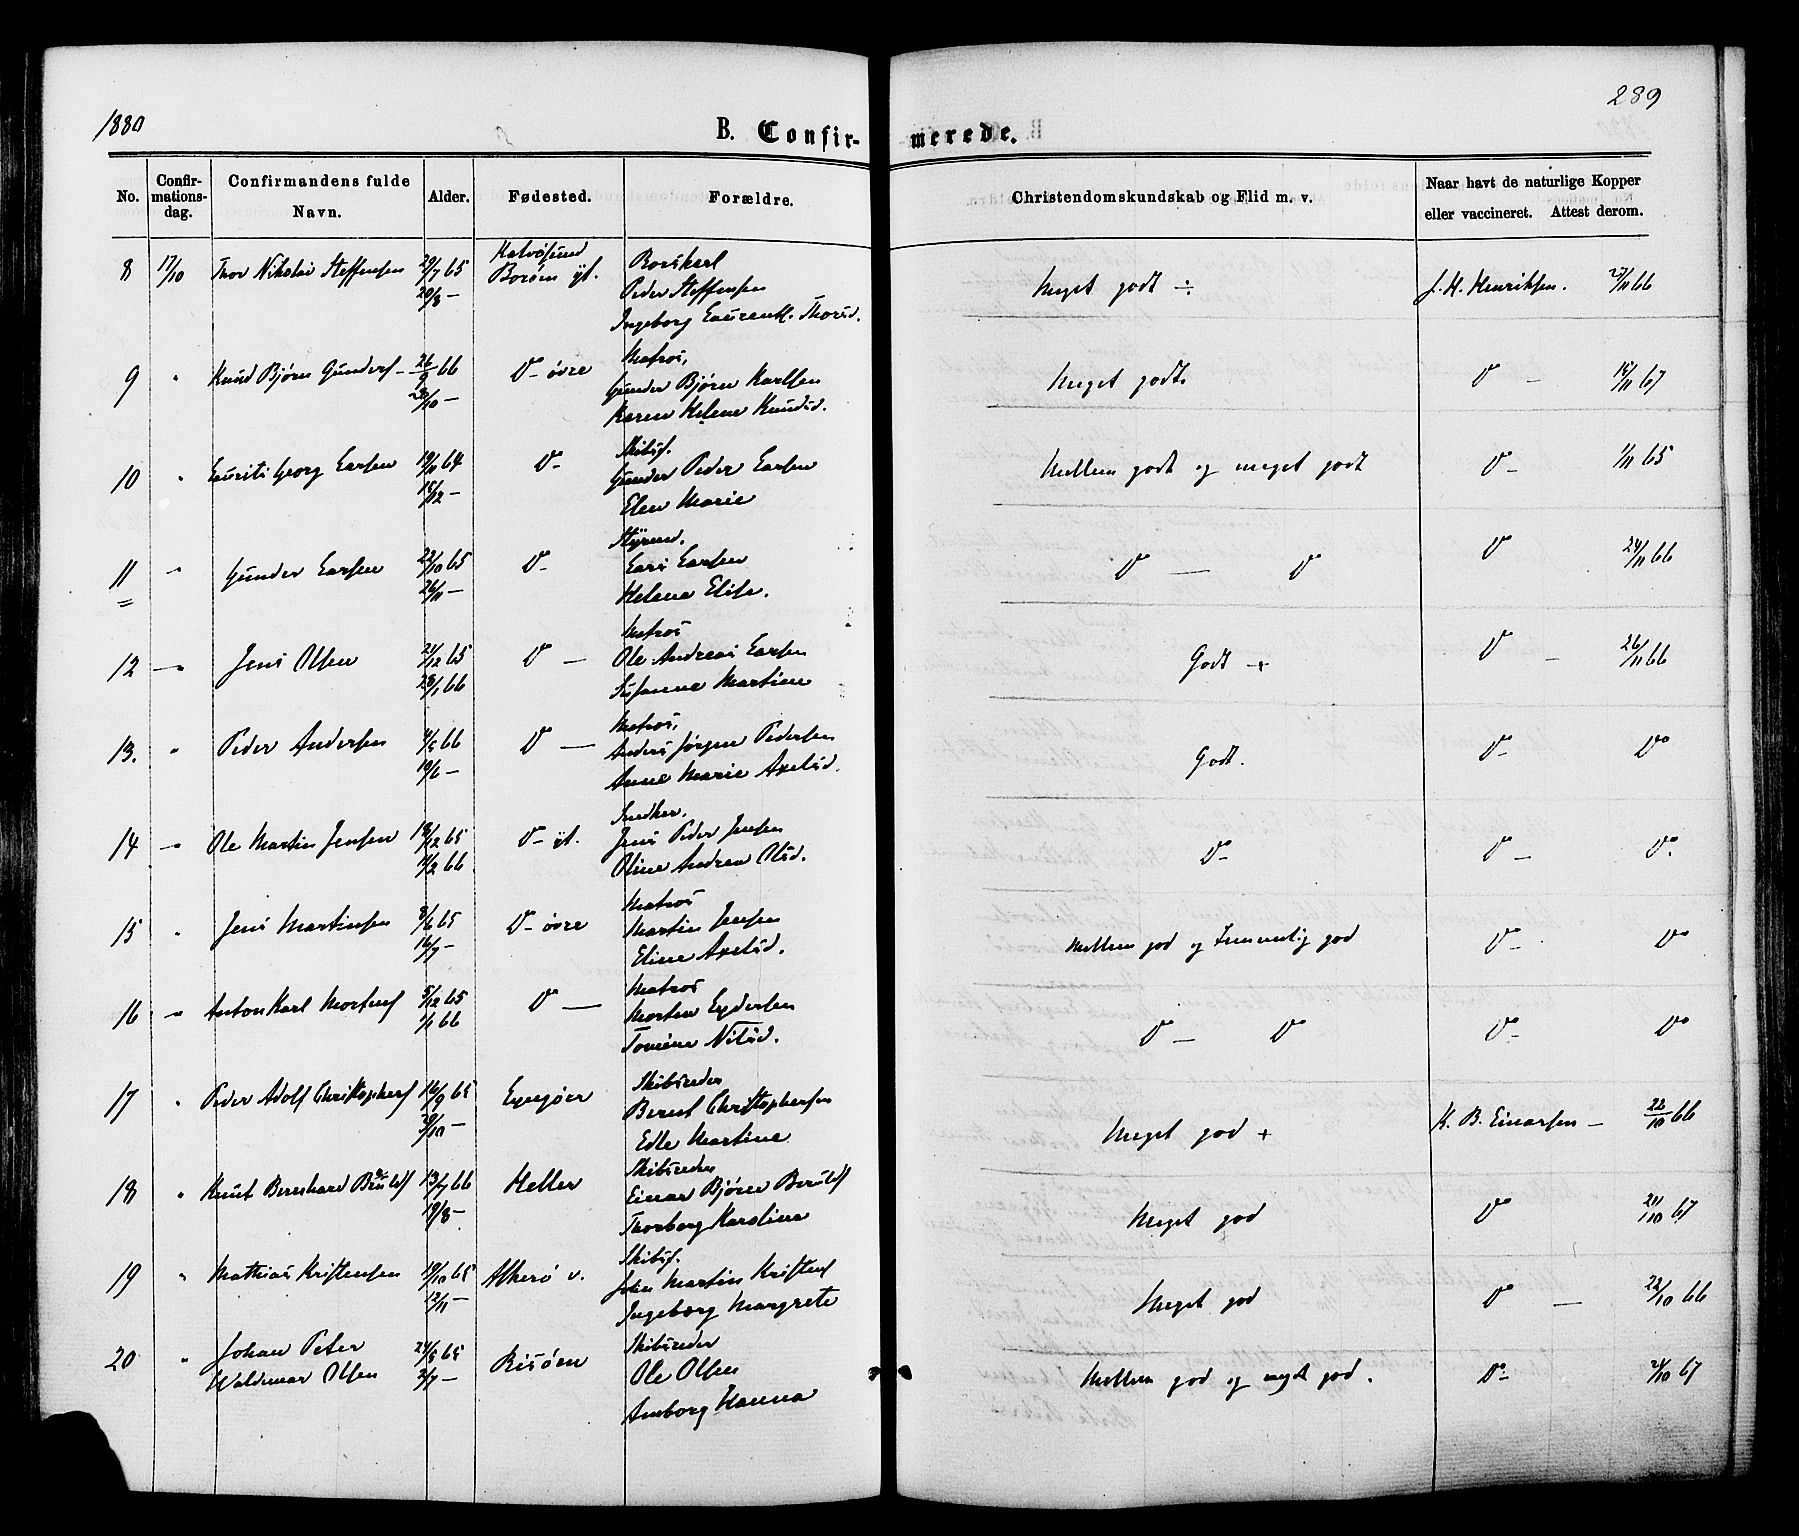 1880
289
B. Confirmerede.
No. Confirmationsdag. Confirmandens fulde Navn. Alder. Fødested. Forældre. Christendomskundskab og Flid m. v. Naar havt de naturlige Kopper eller vaccineret. Attest derom.
8 17/10 Thor Nikolai Steffensen 29/7 65 20/8 —
Borøen yt.
Peder Steffensen
Meget godt ÷ J. H. Henriksen. 27/11 66
9 " Knud Bjørn Gunders. 26/9 66 28/10 — D— øvre
Matros,
Gunder Bjørn Karlsen
Karen Helene Knudsd.
Meget godt. D — 15/11 67
10 " Laurits Georg Larsen 19/11 64 15/12 — D—
Skibsf.
Gunder Peder Larsen
Elen Marie
Mellem godt og meget godt D— 1/11 65
11 " Gunder Larsen 22/10 65 26/11 — D—
Styrmd.
Lars Larsen
Helene Elise.
D — D D 24/11 66
12 — " Jens Olsen 21/12 65 28/1 66 D —
Matros
Ole Andreas Larsen
Susanne Martine
Godt + D — 26/11 66
13. " Peder Andersen 4/5 66 10/6 — D —
Matros,
Anders Jørgen Pedersen
Anne Marie Axelsd.
Godt. D— Do
14 — " Ole Martin Jensen 18/12 65 11/2 66 D— yt.
Snedker.
Jens Peder Jensen
Oline Andrea Olsd.
D— D — Do
15 " Jens Martinsen 8/6 65 16/7 — D— øvre
Matros
Martin Jensen
Eline Axelsd.
Mellem god og Temmelig god D— Do
16 — " Anton Karl Mortens. 5/12 65 1/1 66 D —
Matros
Morten
Tomine Nilsd.
D — D D— Do
17 " Peder Adolf Christophers. 16/9 65 Lyngøer
Skibsreder
Bernt Christophersen
Edle Martine
Meget god + K. B. Einarsen — 22/10 66
18 " Knut Bernhard 13/7 66 19/8 — Heller
Skibsreder
Einar Bjørn
Thorborg Karoline
Meget god D 21/10 67
19 " Mathias Kristensen 19/10 65 12/11 — Askerø v.
Skibsf.
John Martin Kristens.
Ingeborg Margrete
Meget god D — 22/10 66
20 " Johan Peter
Waldemar Olsen 24/5 65 2/7 — Risøen
Skibsreder
Ole Olsen
Amborg Hanna
Mellem god og meget god. D— 21/10 67